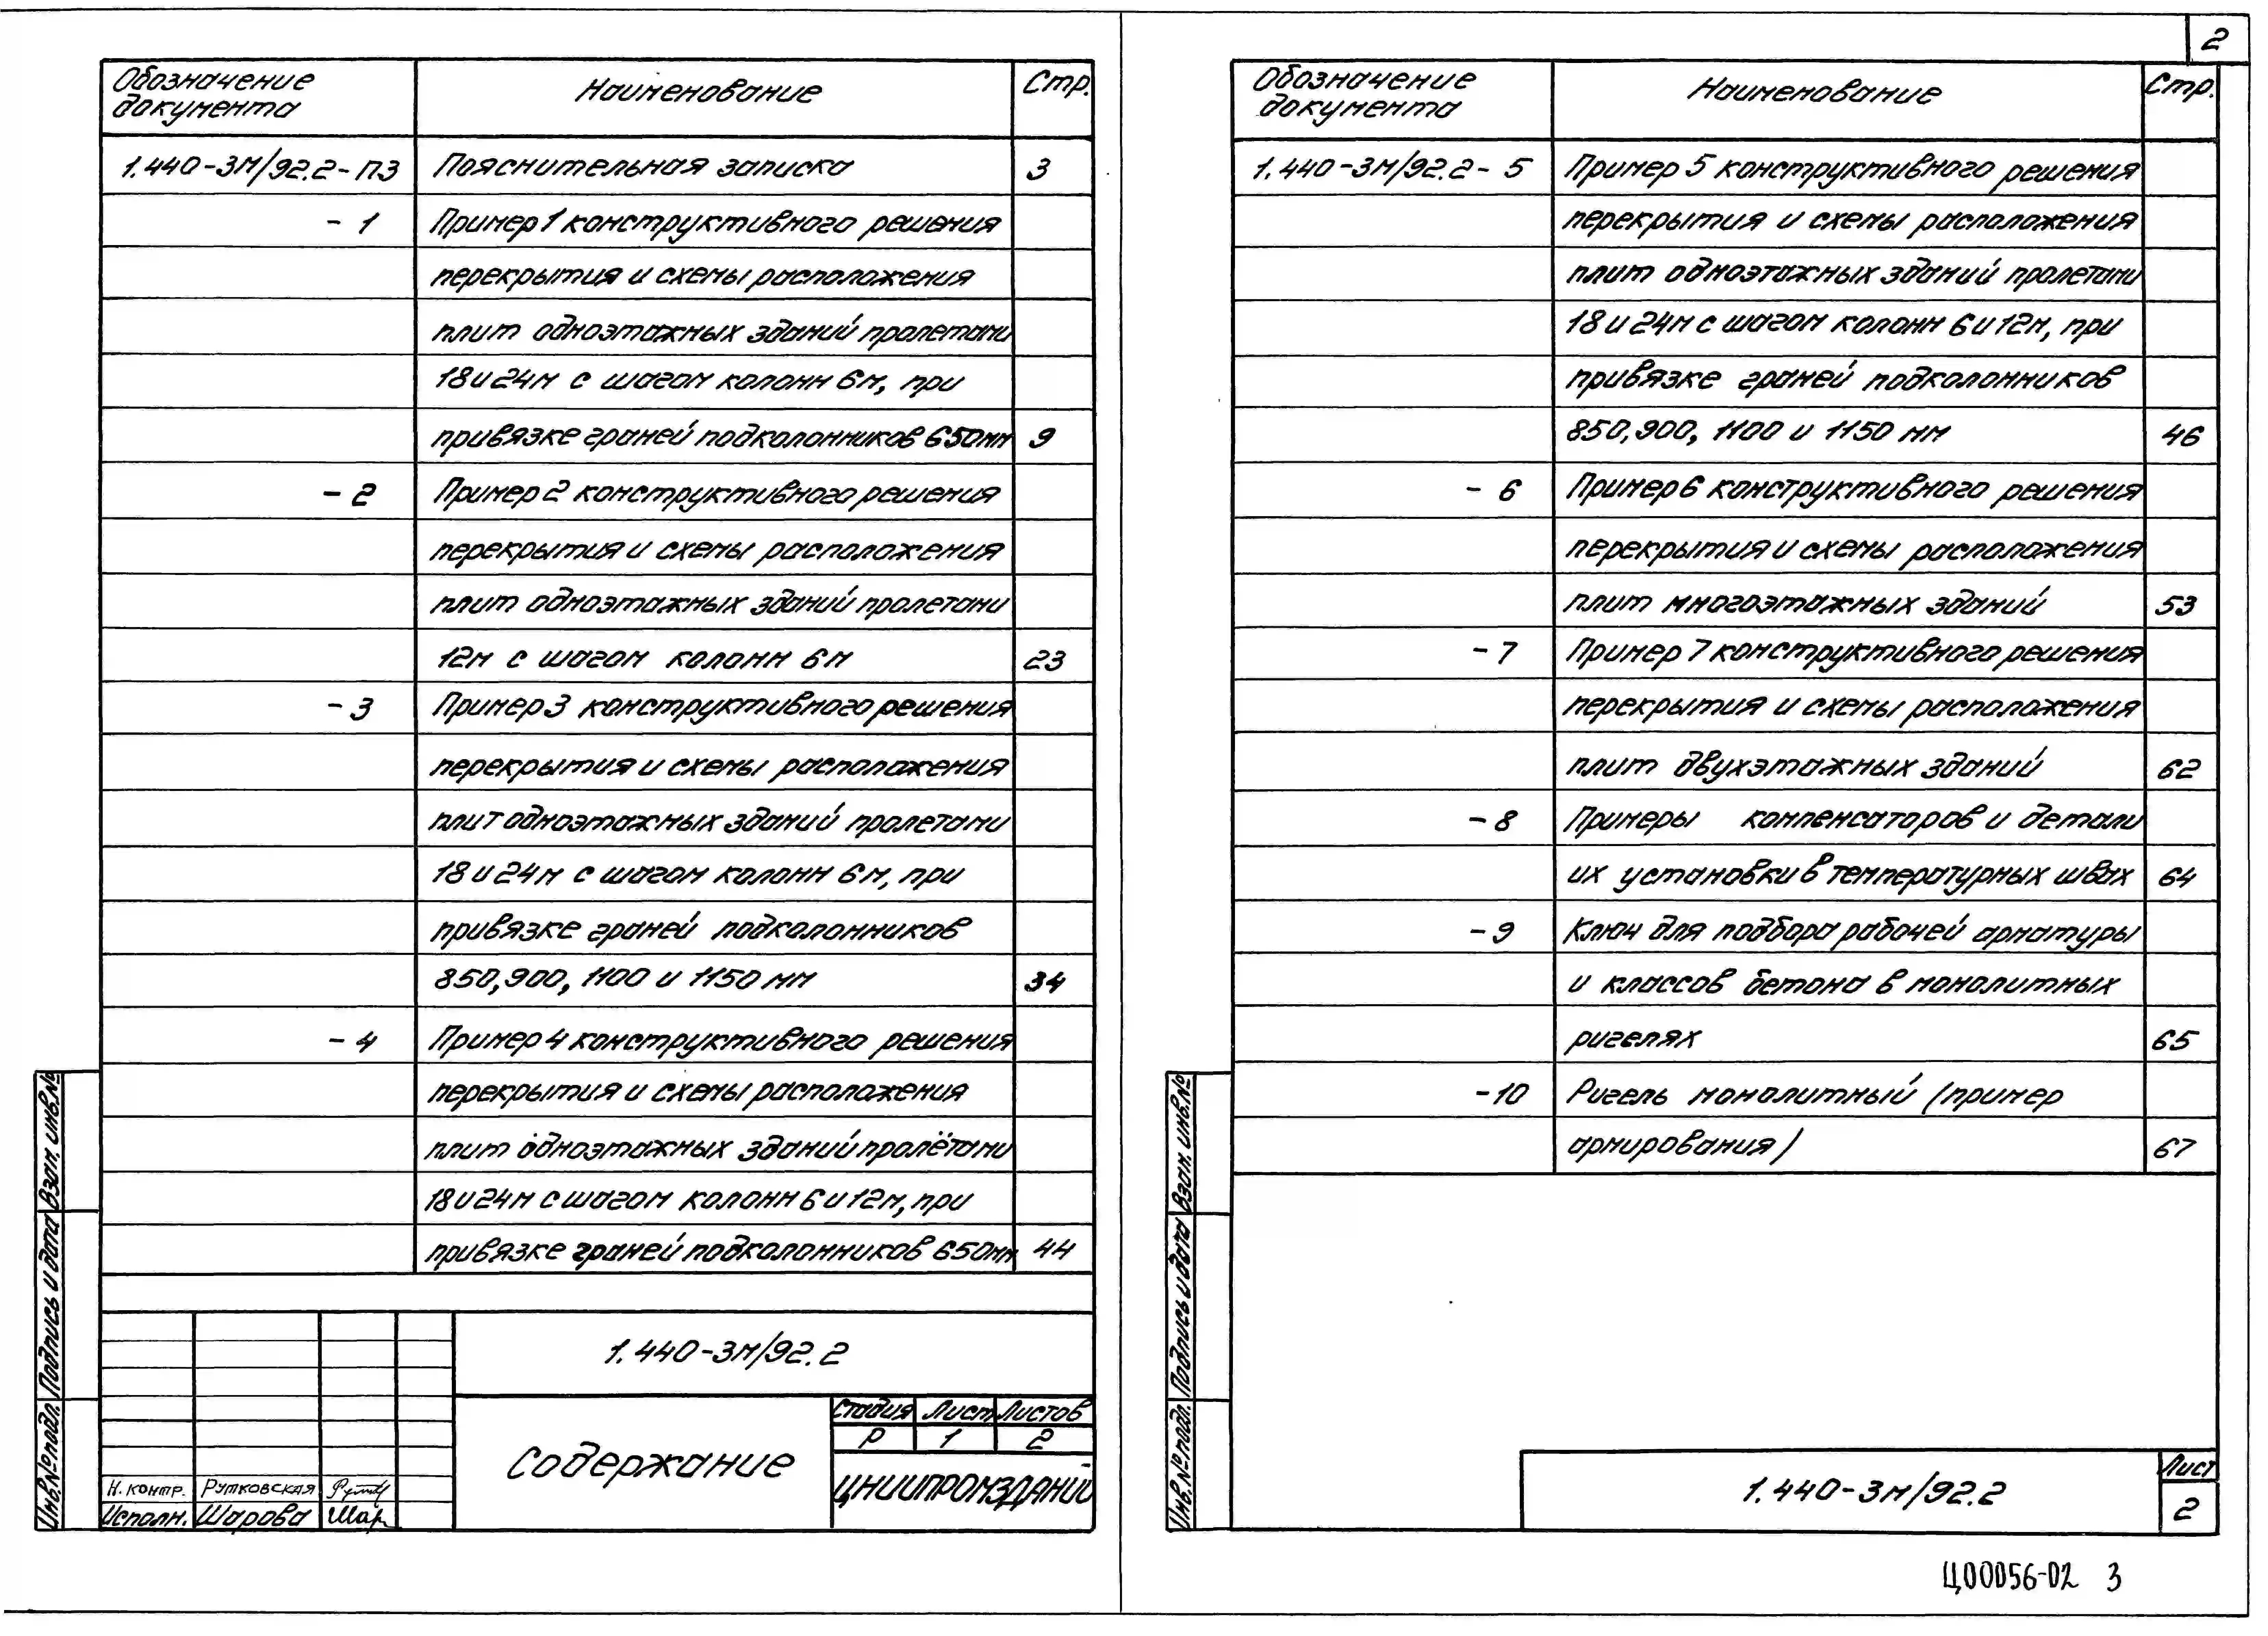 Обозначение документа Наименование Стр.
1.440-3м/92.2-ПЗ Пояснительная записка 3
- 1 Пример 1 конструктивного решения
перекрытия и схемы расположения
плит одноэтажных зданий пролетами
18 и 24м с шагом колонн 6м, при
привязке граней подколонников 650мм 9
- 2 Пример 2 конструктивного решения
перекрытия и схемы расположения
плит одноэтажных зданий пролетами
12м с шагом колонн 6м 23
- 3 Пример 3 конструктивного решения
перекрытия и схемы расположения
плит одноэтажных зданий пролетами
18 и 24м с шагом колонн 6м, при
привязке граней подколонников
850, 900, 1100 и 1150 мм 34
- 4 Пример 4 конструктивного решения
перекрытия и схемы расположения
плит одноэтажных зданий пролётами
18 и 24м с шагом колонн 6 и 12м, при
привязке граней подколонников 650мм 44
1.440-3м/92.2
Содержание
Стадия Лист Листов
Р 1 2
ЦНИИПРОМЗДАНИЙ
Н. контр. Рутковская
Исполн. Шарова Шар
Взам. инв.№
Подпись и дата
Инв.№ подл.
2
Обозначение документа Наименование Стр.
1.440-3м/92.2- 5 Пример 5 конструктивного решения
перекрытия и схемы расположения
плит одноэтажных зданий пролетами
18 и 24м с шагом колонн 6 и 12м, при
привязке граней подколонников
850, 900, 1100 и 1150 мм 46
- 6 Пример 6 конструктивного решения
перекрытия и схемы расположения
плит многоэтажных зданий 53
- 7 Пример 7 конструктивного решения
перекрытия и схемы расположения
плит двухэтажных зданий 62
- 8 Примеры компенсаторов и детали
их установки в температурных швах 64
- 9 Ключ для подбора рабочей арматуры
и классов бетона в монолитных
ригелях 65
-10 Ригель монолитный (пример
армирования) 67
Взам. инв.№
Подпись и дата
Инв.№ подл.
1.440-3м/92.2
Лист
2
Ц00056-02 3